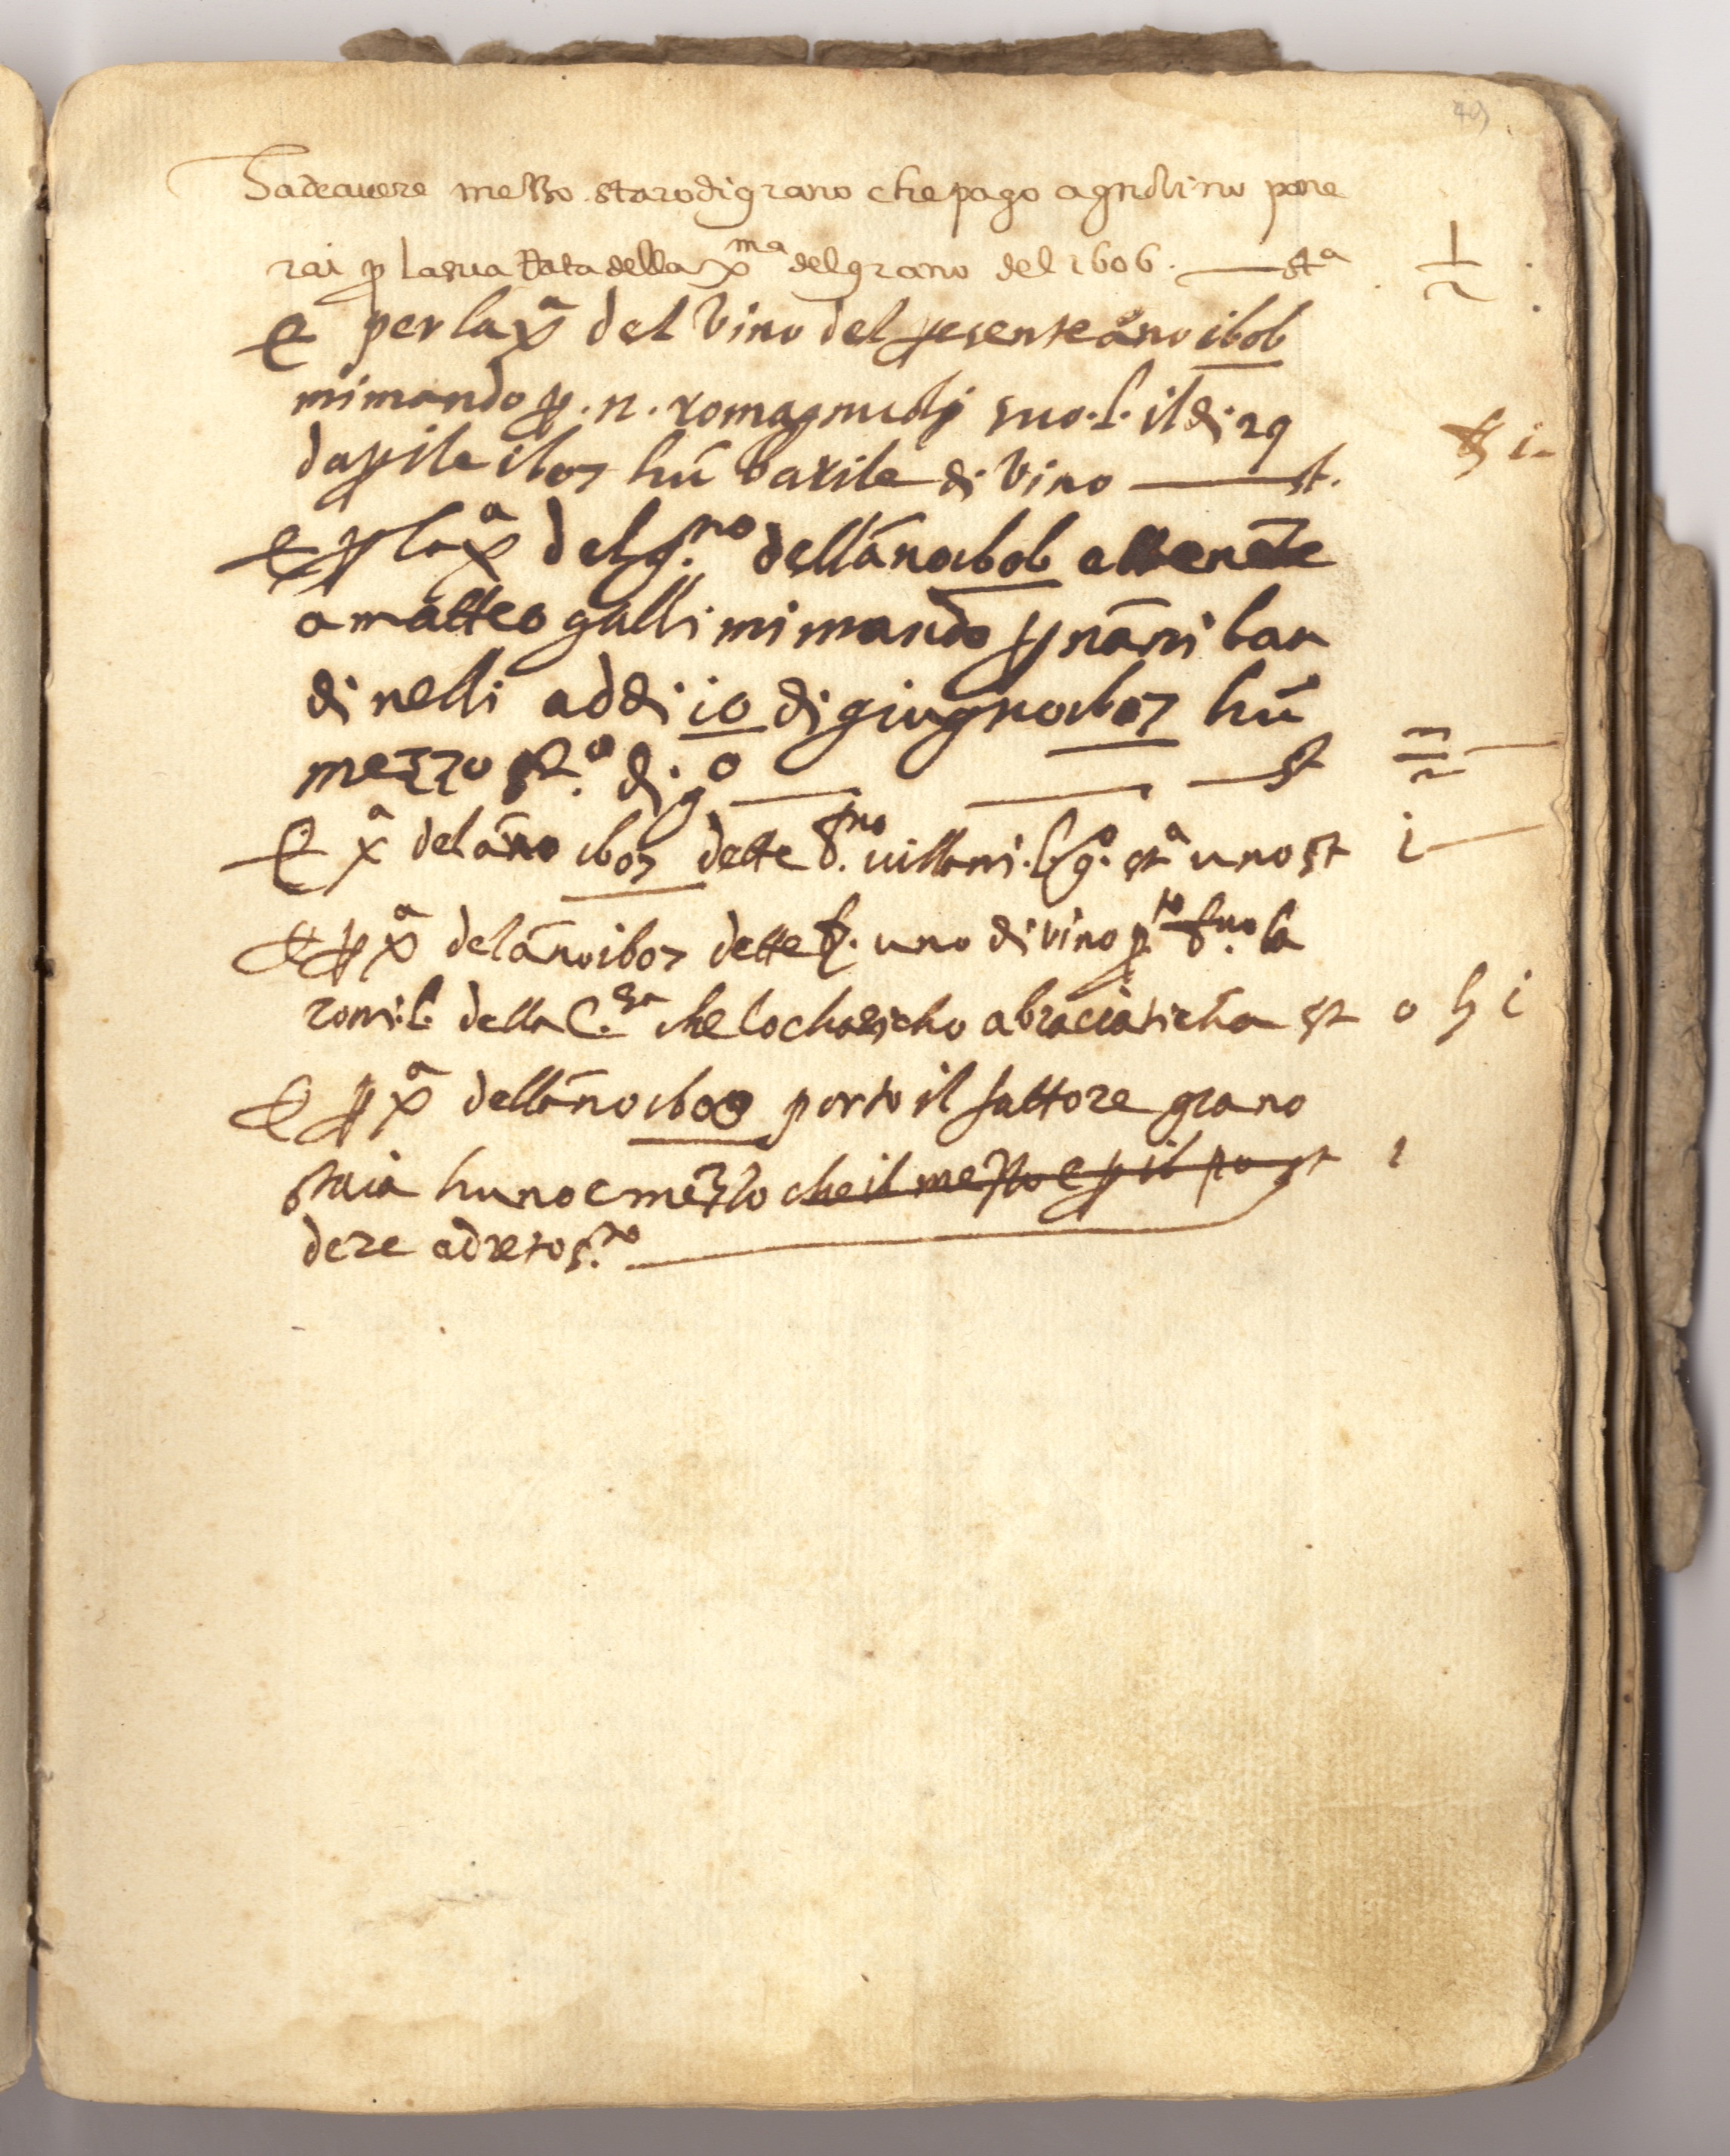 Sadeavere mezzo starodigrano che pago agnolino pone
rai p lasua Rata della xma delgrano del 1606. sta 1/2
E per la xa del vino del presente ano 1606
mimando p. n. romagnuolj suo. l. il di. 29
daprile 1607 hū barile di vino st. i
E p la xa del g.no dellāno 1606 attenēte
a matteo galli mimando p nāni ban
dinelli addi io di giugno 1607 hū
mezzo st.o di go st
E xa del āno 1607 dette villani. l. go. sta uno st i
E p xa del āno 1607 dette uno di vino
roni. l. della che lo charicho abraciaticha st o i
E p xa dellāno 1608 porto il fattore grano
staia huno e mezzo che il mezzo e p il po st 1
dere